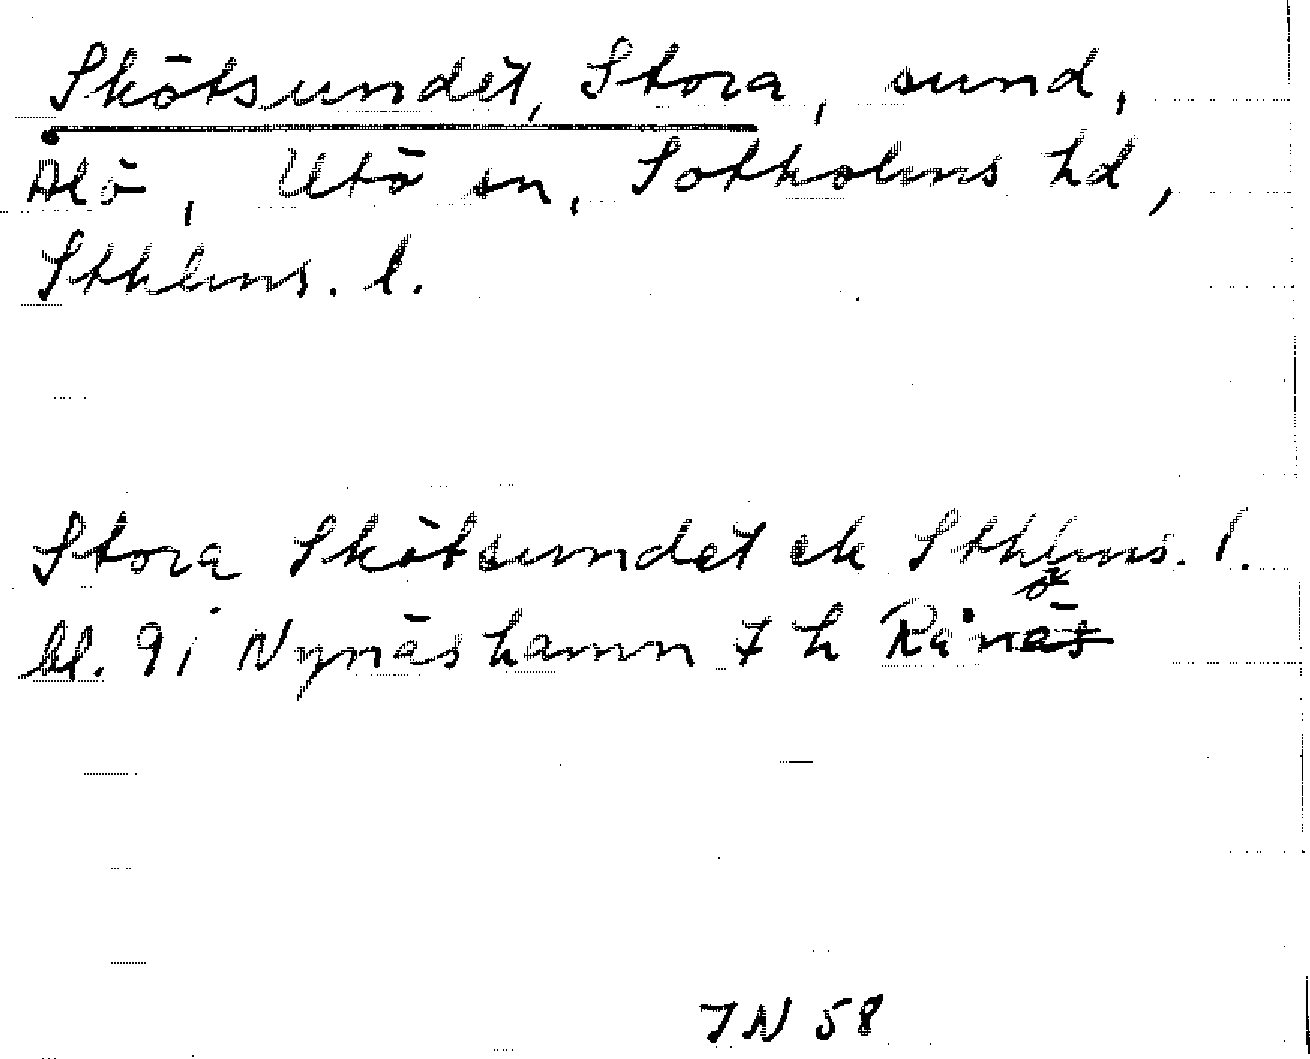 Skötsundet, Stora, sund,
Ålö, Utö sn, Sotholms hd,
Sthlms. l.
Stora Skötsundet ek Sthlms. l.
bl. 91 Nynäshamn 7 h Rånö
JN 58